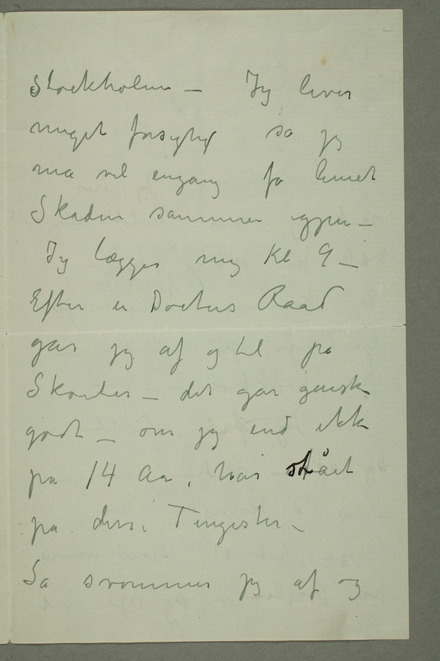 Stockholm – Jeg lever
meget forsigtig så jeg
må vel engang få limet
Skaden sammen igjen –
Jeg lægger mig Kl 9 –
Efter en Doctors Raad
går jeg af og til på
Skøiter – det går ganske
godt – om jeg end ikke
på 14 Aar har stået
på disse Tingester –
Så svømmer jeg af og